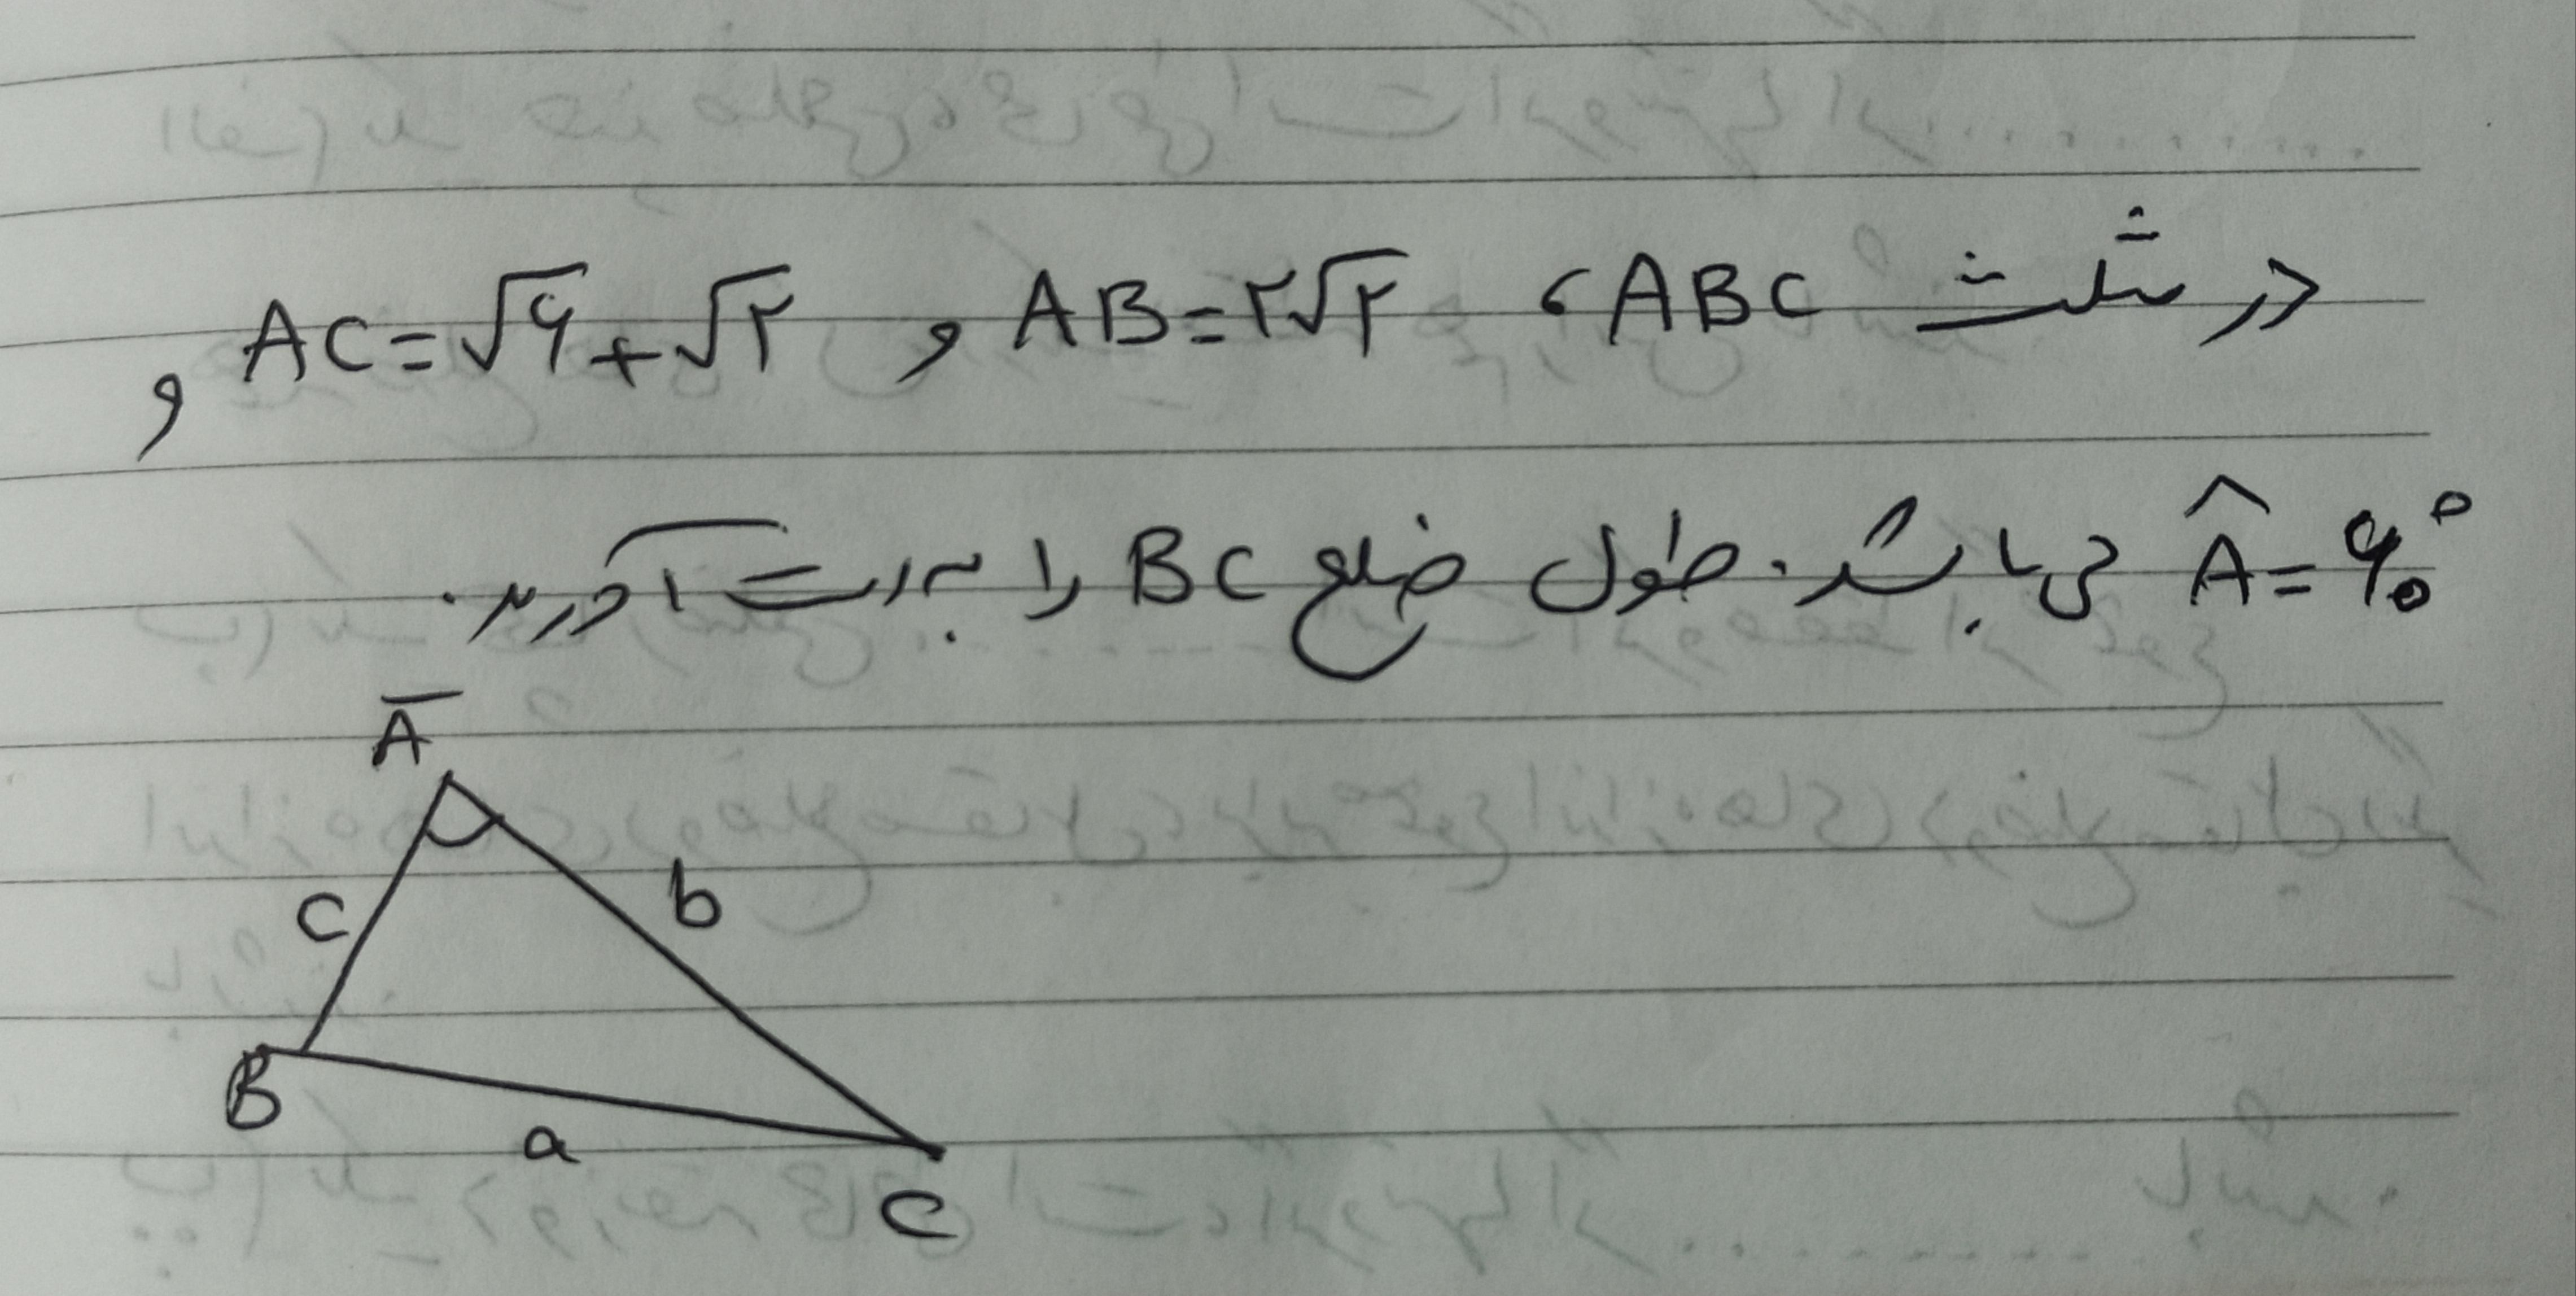 در مثلث ABC، AB=۲√۲ و AC=√۶+√۲ و
Â=۶۰° می باشد. طول ضلع BC را بدست آورید.
A
c b
B
a
C